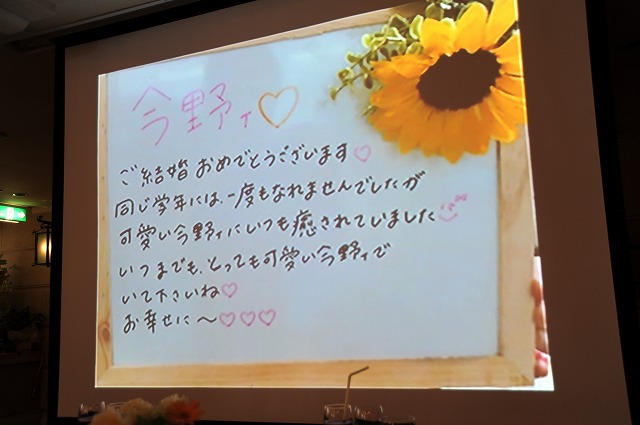 今野T♡
ご結婚おめでとうございます♡
同じ学年には、一度もなれませんでしたが
可愛い今野Tにいつも癒されていました
いつまでも、とっても可愛い今野Tで
いて下さいね♡
お幸せに〜♡♡♡